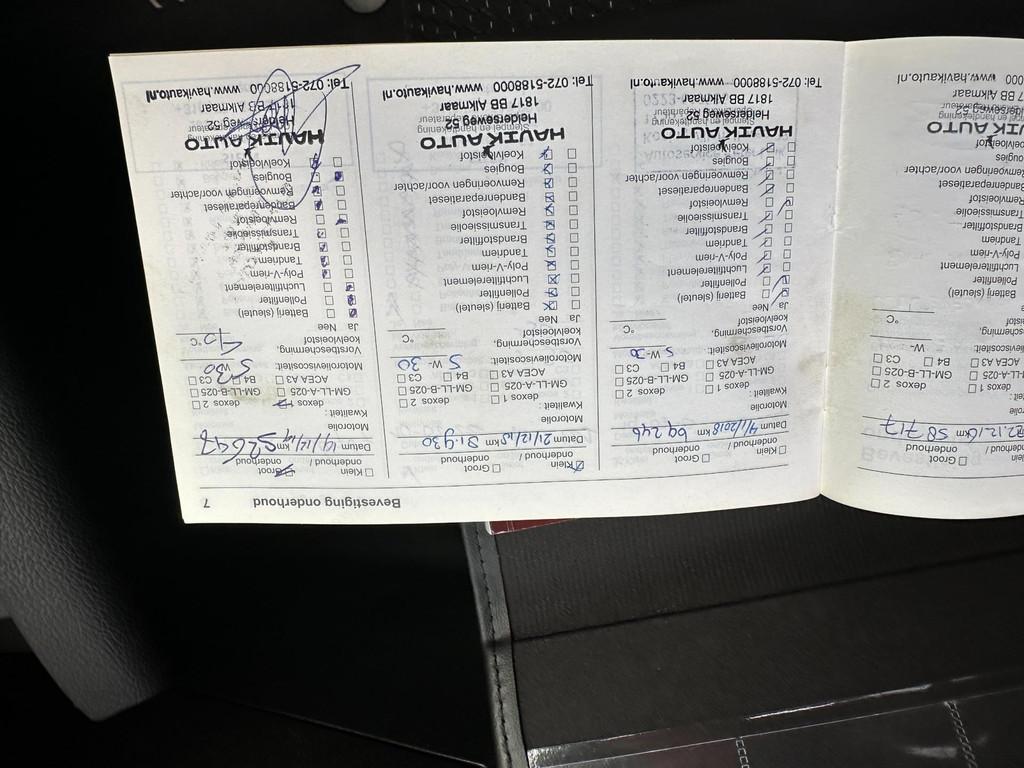 onderhoud / □ Groot
onderhoud
22.12.16 km 58717
dexos 1 □ dexos 2
GM-LL-B-025
ACEA A3 □ B4 □ C3
W-
°C
Luchtfilterelement
Poly-V-riem
Tandriem
Brandstoffilter
Transmissieolie
Remvloeistof
Bandenreparatieset
Remvoeringen voor/achter
Bougies
HAVIK AUTO
www.havikauto.nl
Bevestiging onderhoud 7
□ Klein □ Groot
onderhoud / onderhoud
Datum 4/1/2018 km 69246
Motorolie
Kwaliteit:
□ dexos 1 □ dexos 2
□ GM-LL-A-025 □ GM-LL-B-025
□ ACEA A3 □ B4 □ C3
Motorolieviscositeit: 5 W-30
Vorstbescherming,
koelvloeistof °C
Ja Nee
Batterij (sleutel)
Pollenfilter
Luchtfilterelement
Poly-V-riem
Tandriem
Brandstoffilter
Transmissieolie
Remvloeistof
Bandenreparatieset
Remvoeringen voor/achter
Bougies
Koelvloeistof
HAVIK AUTO
Helderseweg 52
1817 BB Alkmaar
Tel: 072-5188000 www.havikauto.nl
Klein □ Groot
onderhoud / onderhoud
Datum 21/12/18 km 81.930
Motorolie
Kwaliteit:
□ dexos 1 □ dexos 2
□ GM-LL-A-025 □ GM-LL-B-025
□ ACEA A3 □ B4 □ C3
Motorolieviscositeit: 5 W- 30
Vorstbescherming,
koelvloeistof °C
Ja Nee
Batterij (sleutel)
Pollenfilter
Luchtfilterelement
Poly-V-riem
Tandriem
Brandstoffilter
Transmissieolie
Remvloeistof
Bandenreparatieset
Remvoeringen voor/achter
Bougies
Koelvloeistof
HAVIK AUTO
Helderseweg 52
1817 BB Alkmaar
Tel: 072-5188000 www.havikauto.nl
□ Klein Groot
onderhoud / onderhoud
Datum 19/12/19 km 92648
Motorolie
Kwaliteit:
dexos 1 □ dexos 2
□ GM-LL-A-025 □ GM-LL-B-025
□ ACEA A3 □ B4 □ C3
Motorolieviscositeit: 5 W30
Vorstbescherming,
koelvloeistof 40 °C
Ja Nee
Batterij (sleutel)
Pollenfilter
Luchtfilterelement
Poly-V-riem
Tandriem
Brandstoffilter
Transmissieolie
Remvloeistof
Bandenreparatieset
Remvoeringen voor/achter
Bougies
Koelvloeistof
HAVIK AUTO
Helderseweg 52
1817 BB Alkmaar
Tel: 072-5188000 www.havikauto.nl